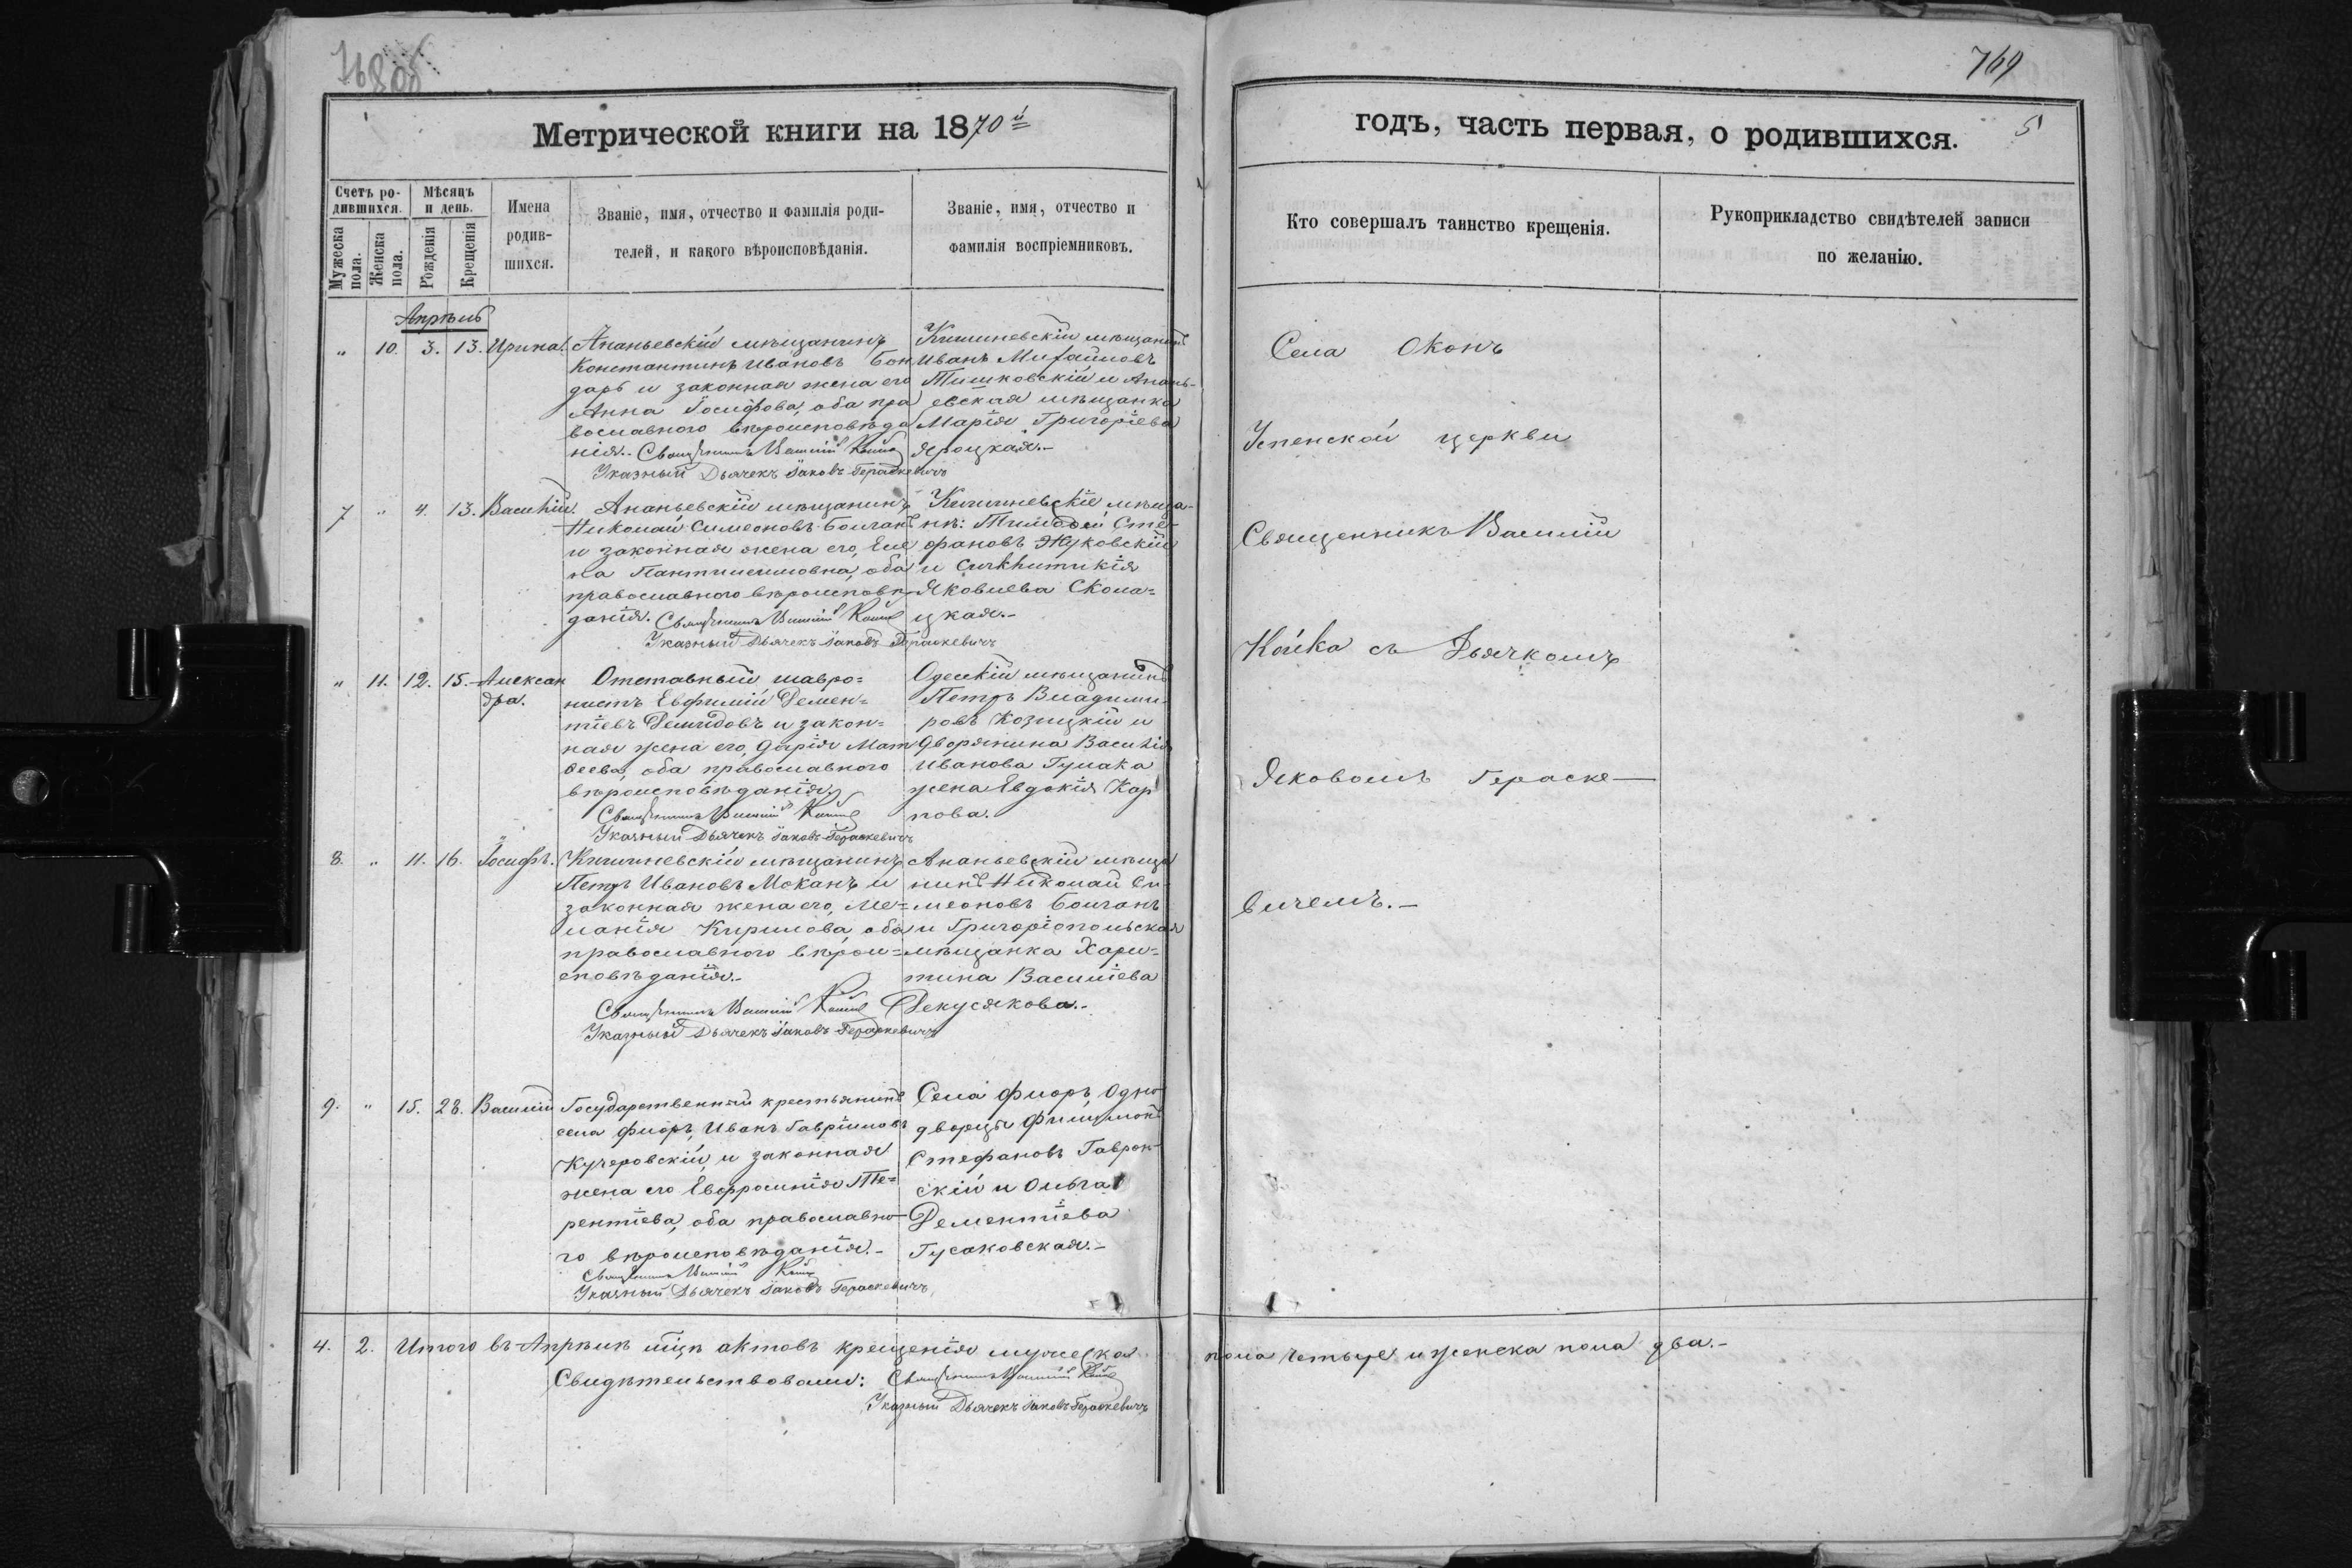 769
Метрической книги на 1870й
годъ, часть первая, о родившихся.
5
Счетъ ро-
дившихся.
Мужеска
пола.
Женска
пола.
Мѣсяцъ
и день.
Рожденія
Крещенія
Имена
родив-
шихся.
Званіе, имя, отчество и фамилія роди-
телей, и какого вѣроисповѣданія.
Званіе, имя, отчество и
фамилія воспріемниковъ.
Кто совершалъ таинство крещенія.
Рукоприкладство свидѣтелей записи
по желанію.
Апрѣль
" 10. 3. 13. Ирина.
Ананьевскій мѣщанинъ
Константинъ Ивановъ Бон
дарь и законная жена его
Анна Іосифова, оба пра
вославнаго вѣроисповѣда
нія.- Священникъ Василій Койка
Указный Дьячекъ Іаковъ Гераскевичъ
Кишиневскій мѣщанинъ
Иванъ Михайловъ
Тишковскій и Анань-
евская мѣщанка
Марія Григоріева
Яроцкая.-
7 " 4. 13. Василій.
Ананьевскій мѣщанинъ
Николай Симеоновъ Болганъ
и законная жена его, Еле
на Пантилимовна, оба
православного вѣроисповѣ-
данія. Священникъ Василій Койка
Указный Дьячекъ Іаковъ Гераскевичъ
Кишиневскіе мѣща-
нѣ: Тимофей Сте-
фановъ Жуковскій
и Синклитикія
Яковлева Скома=
цкая.-
" 11. 12. 15. Алексан
дра.
Отставный
нистъ Евфимій Демен=
тіевъ Демидовъ и закон=
ная жена его, Дарія Мат
ѳеева, оба православнаго
вѣроисповѣданія.
Священникъ Василій Койка
Указный Дьячекъ Іаковъ Гераскевичъ
Одескій мѣщанинъ
Петръ Владими-
ровъ Козицкій и
Дворянина Василія
Иванова Гулака
жена Евдокія Кар
пова.
8. " 11. 16. Іосифъ.
Кишиневскій мѣщанинъ
Петръ Ивановъ Моканъ и
законная жена его, Ме=
ланія Кирилова, оба
православного вѣрои=
сповѣданія.-
Священникъ Василій Койка
Указный Дьячекъ Іаковъ Гераскевичъ
Ананьевскій мѣща
нинъ Николай Си-
меоновъ Болганъ
и Григоріопольская
мѣщанка Хари=
тина Василіева
Декусякова.-
9. " 15. 28. Василій
Государственный крестьянинъ
села Флоръ, Иванъ Гавріиловъ
Кучеровскій, и законная
жена его Евфросинія Те=
рентіева, оба православно-
го вѣроисповѣданія.-
Священникъ Василій Койка
Указный Дьячекъ Іаковъ Гераскевичъ
Села Флоръ, Одно-
дворцы Филимонъ
Стефановъ Гаврон-
скій и Ольга
Дементіева
Гусаковская.-
Села Оконъ
Успенской церкви
Священникъ Василій
Койка съ Дьячкомъ
Яковомъ Гераске-
вичемъ.-
4. 2. Итого въ Апрѣлѣ мцѣ актовъ крещенія мужеска
пола четыре и женска пола два.-
Свидѣтельствовали: Священникъ Василій Койка
Указный Дьячекъ Іаковъ Гераскевичъ